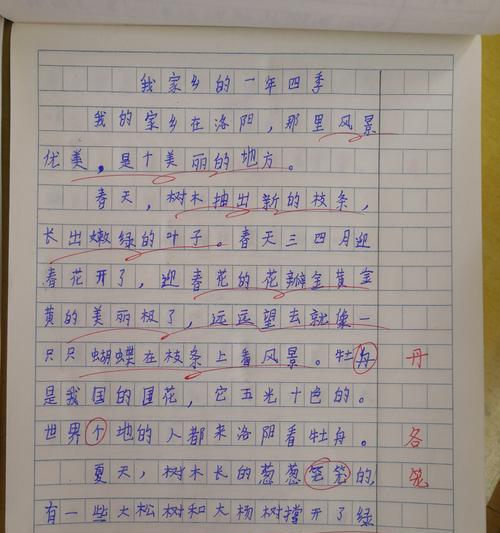 我家乡的一年四季
我的家乡在洛阳，那里风景
优美，是个美丽的地方。
春天，树木抽出新的枝条，
长出嫩绿的叶子。春天三四月迎
春花开了，迎春花的花瓣金黄金
黄的美丽极了，远远望去就像一
只只蝴蝶在枝条上看风景。牡舟 丹
是我国的国花，它五光十色的。
世界个地的人都来洛阳看牡舟。 各
夏天，树木长的葱葱笼笼的， 笼
有一些大松树和大杨树撑开了绿